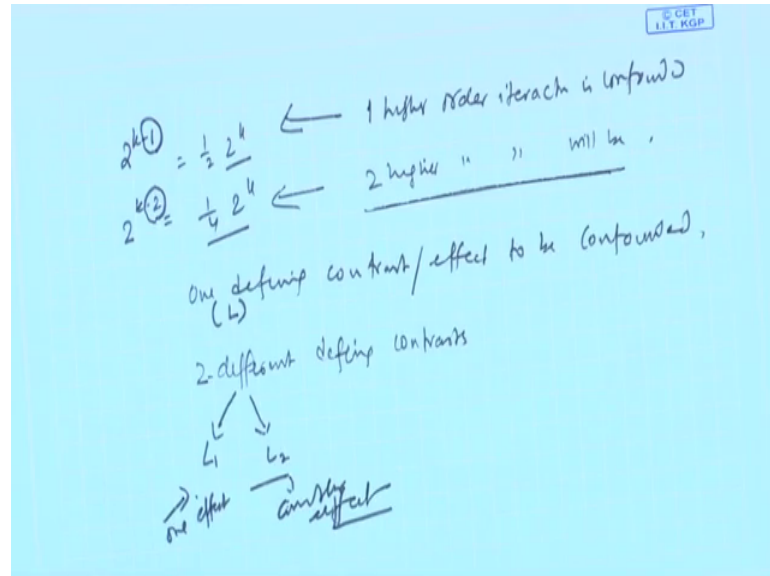 © CET
I.I.T. KGP
2^{k-1} = 1/2 2^k ← 1 higher order iteractn is confound
2^{k-2} = 1/4 2^k ← 2 higher " " will be .
One defining contrast/effect to be confounded,
(L)
2-different defing contrasts
L₁ L₂
one effect another
effect